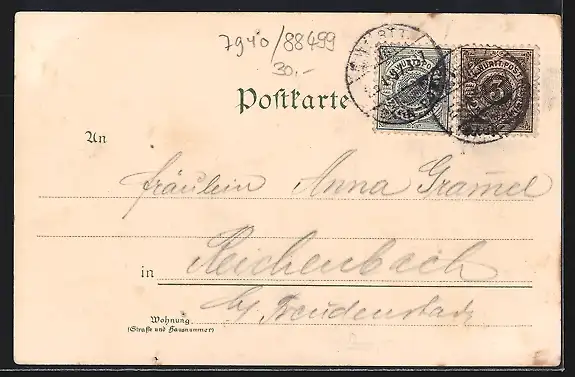 7940/88499
30.-
K. WÜRTT. POST
3
Postkarte
An
Fräulein Anna Gramel
in Reichenbach
by Freudenstadt
Wohnung
(Straße und Hausnummer)